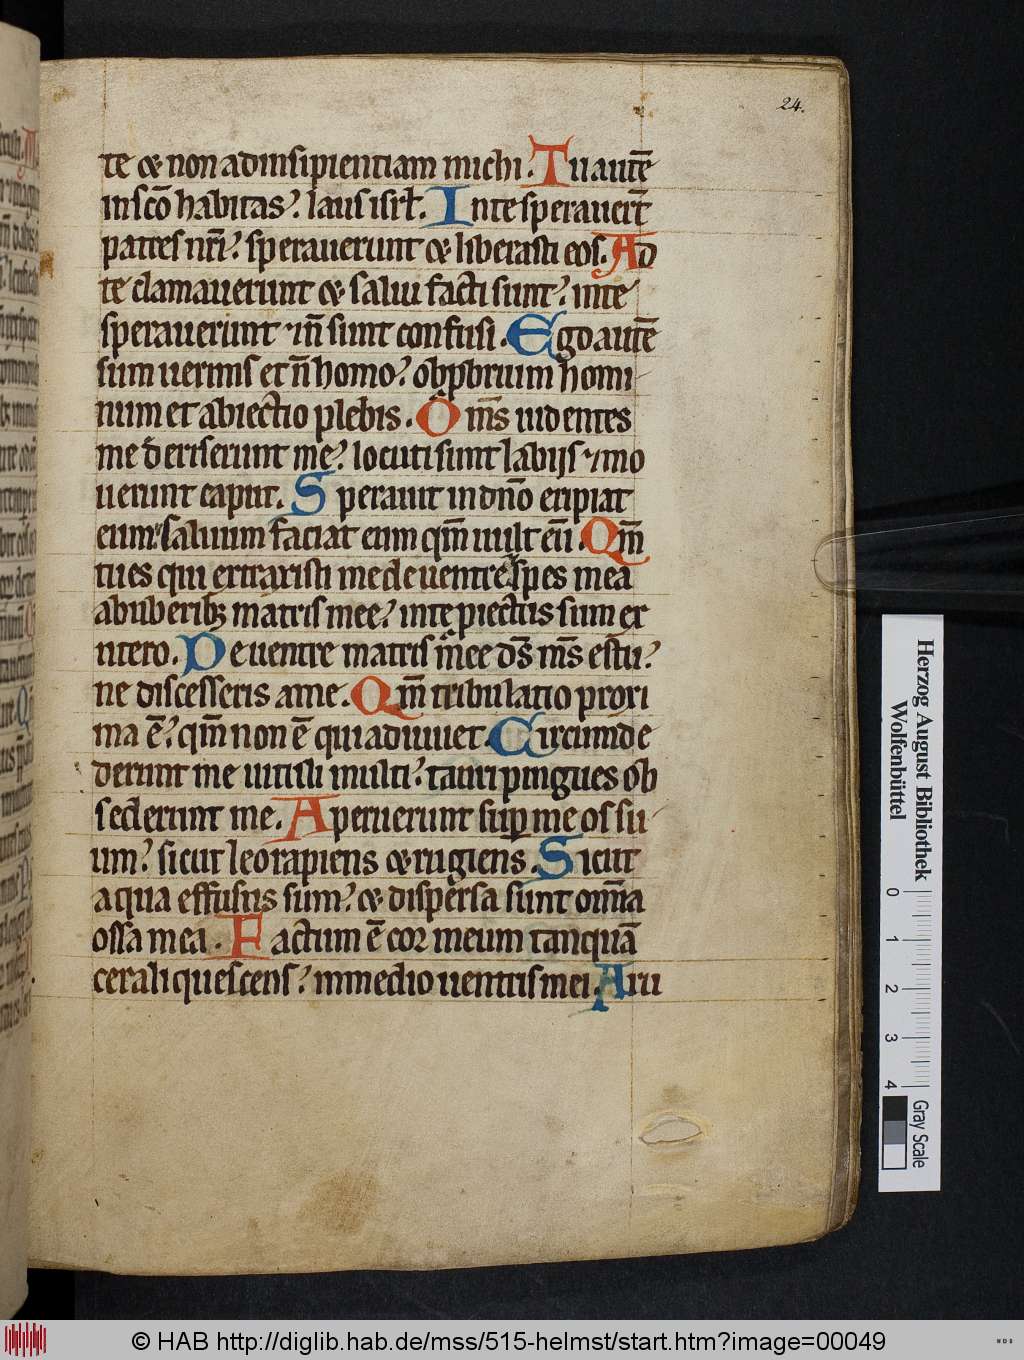 24.
te & non ad insipientiam michi. Tu autē
in scō habitas? laus isrł. In te sperauer̄t
patres nr̄i? sperauerunt & liberasti eos. Ad
te clamauerunt & salui facti sunt? in te
sperauerunt ⁊ nō sunt confusi. Ego autē
sum uermis et n̄ homo? obpbrium homi
num et abiectio plebis. Om̄s uidentes
me deriserunt me? locuti sunt labijs ⁊ mo
uerunt caput. Sperauit in dn̄o eripiat
eum saluum faciat eum qm̄ uult eū. Qm̄
tu es qui extraxisti me de uentre spes mea
ab uberibꝫ matris mee? in te piectus sum ex
utero. De uentre matris mee ds̄ ms̄ es tu?
ne discesseris a me. Qm̄ tribulatio proxi
ma ē? qm̄ non ē qui adiuuet. Circumde
derunt me uituli multi? tauri pingues ob
sederunt me. Aperuerunt sup me os su
um? sicut leo rapiens & rugiens. Sicut
aqua effusus sum? & dispersa sunt om̄ia
ossa mea. Factum ē cor meum tanquā
cera liquescens? in medio uentris mei. Aru
Herzog August Bibliothek
Wolfenbüttel
0 1 2 3 4
Gray Scale
© HAB http://diglib.hab.de/mss/515-helmst/start.htm?image=00049